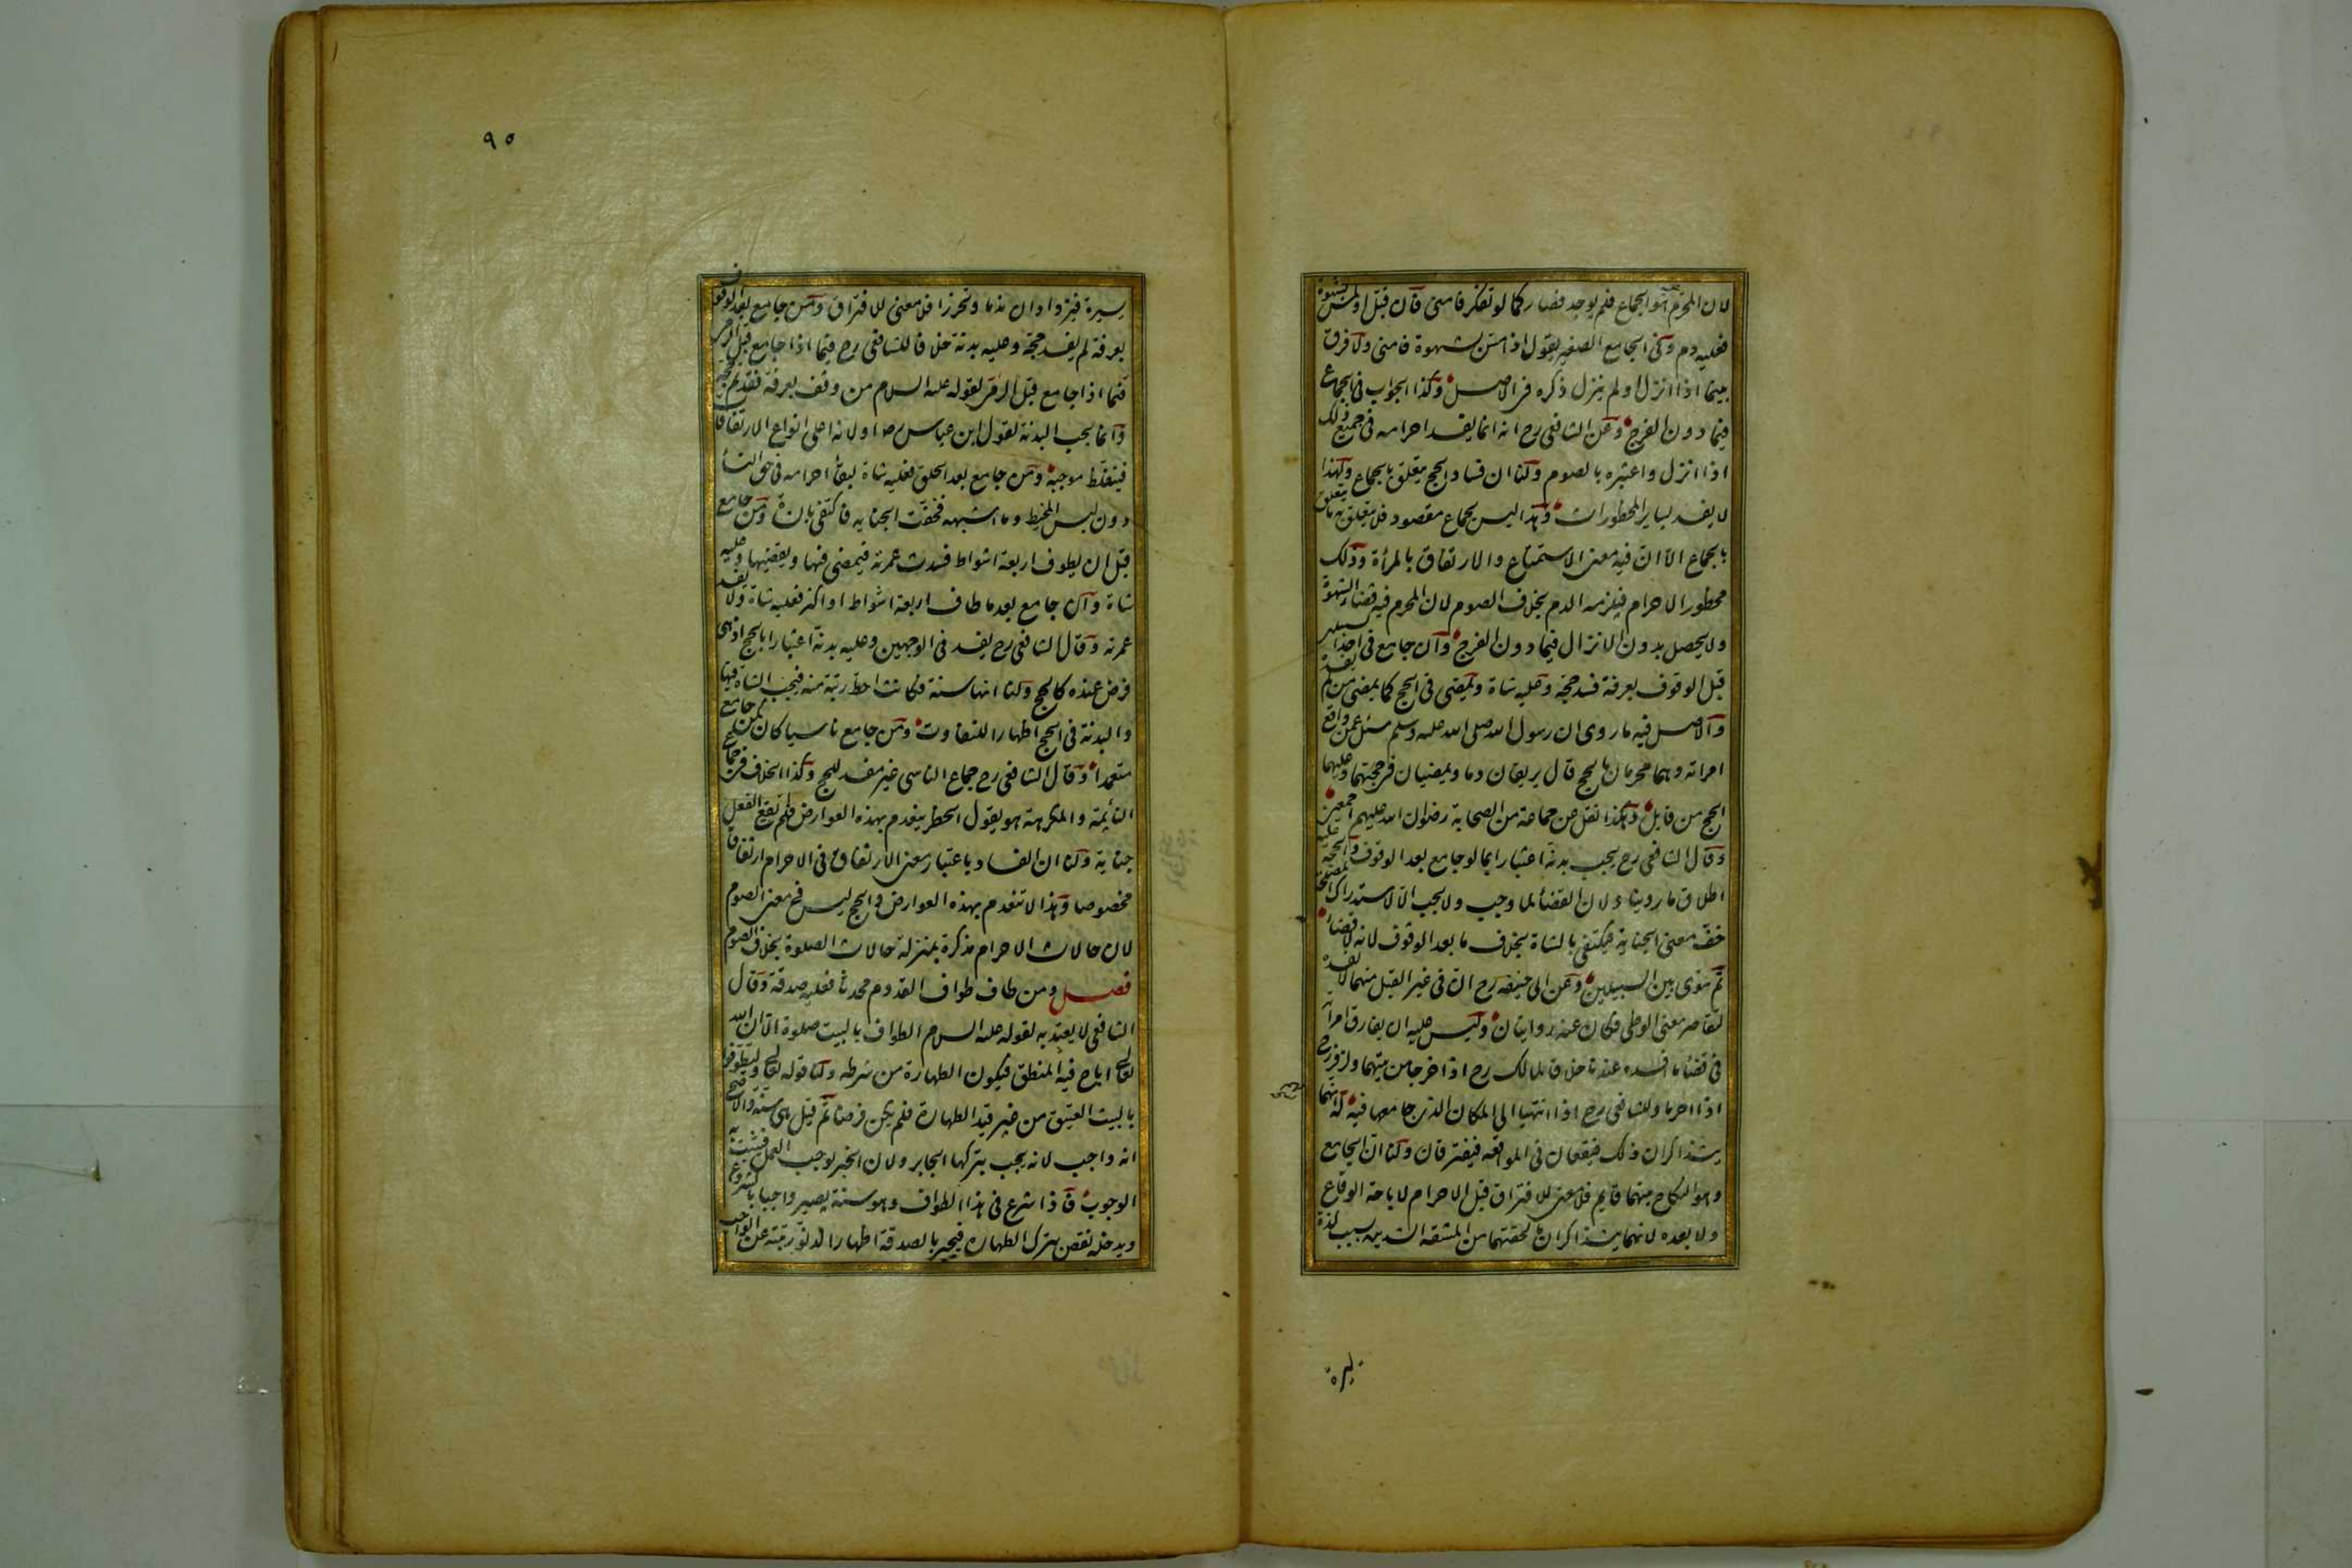 لان المحرم هو الجماع فلم يوجد فصار كما لو تفكر فامنى فان قبل او لمس بشهوة
فعليه دم وفى الجامع الصغير يقول اذا مس بشهوة فامنى ولا فرق
بينما اذا انزل او لم ينزل ذكره فى الاصل وكذا الجواب فى الجماع
فيما دون الفرج وعن الشافعى رح انه انما يفسد احرامه فى جميع ذلك
اذا انزل واعتبره بالصوم ولنا ان فساد الحج يتعلق بالجماع ولهذا
لا يفسد بساير المحظورات وهذا ليس بجماع مقصود فلا يتعلق به ما يتعلق
بالجماع الا ان فيه معنى الاستمتاع والارتفاق بالمرأة وذلك
محظور الاحرام فيلزمه الدم بخلاف الصوم لان المحرم فيه قضاء الشهوة
ولا يحصل بدون الانزال فيما دون الفرج وان جامع فى احد السبيلين
قبل الوقوف بعرفة فسد حجه وعليه شاة ويمضى فى الحج كما يمضى من لم يفسد
والاصل فيه ما روى ان رسول الله صلى الله عليه وسلم سئل عمن واقع
امراته وهما محرمان بالحج قال يريقان دما ويمضيان فى حجتهما وعليهما
الحج من قابل وهكذا نقل عن جماعة من الصحابة رضوان الله عليهم اجمعين
وقال الشافعى رح يجب بدنة اعتبارا بما لو جامع بعد الوقوف والحجة عليه
اطلاق ما روينا ولان القضاء لما وجب ولا يجب الا لاستدراك المصلحة
خف معنى الجناية فيكتفى بالشاة بخلاف ما بعد الوقوف لانه لا قضاء
ثم سوى بين السبيلين وعن ابى حنيفة رح ان فى غير القبل منهما لا يفسد
لتقاصر معنى الوطى فكان عنه روايتان وليس عليه ان يفارق امرأته
فى قضاء ما افسده عندنا خلافا لمالك رح اذا خرجا من بيتهما ولزفر رح
اذا احرما وللشافعى رح اذا انتهيا الى المكان الذى جامعها فيه له انهما
يتذاكران ذلك فيقعان فى المواقعه فيفترقان ولنا ان الجامع
وهو النكاح بينهما قايم فلا معنى للافتراق قبل الاحرام لاباحة الوقاع
ولا بعده لانهما يتذاكران ما لحقتهما من المشقة الشديده بسبب لذة
يسيرة
٩٥
يسيرة فيزدادان ندما وتحرزا فلا معنى للافتراق ومن جامع بعد الوقوف
بعرفة لم يفسد حجه وعليه بدنة خلافا للشافعى رح فيما اذا جامع قبل الرمى
فيما اذا جامع قبل الرمى لقوله عليه السلام من وقف بعرفة فقد تم حجه
وانما يجب البدنة لقول ابن عباس رضه او لانه اعلى انواع الارتفاقات
فيتغلظ موجبه ومن جامع بعد الحلق فعليه شاة لبقاء احرامه فى حق النسأ
دون لبس المخيط وما اشبهه فخفت الجنايه فاكتفى بالشاة ومن جامع
قبل ان يطوف اربعة اشواط فسدت عمرته فيمضى فيها ويقضيها وعليه
شاة وان جامع بعدما طاف اربعة اشواط او اكثر فعليه شاة ولا يفسد
عمرته وقال الشافعى رح يفسد فى الوجهين وعليه بدنة اعتبارا بالحج اذ هى
فرض عنده كالحج ولنا انها سنة فكانت احط رتبة منه فيجب الشاة فيها
والبدنة فى الحج اظهارا للتفاوت ومن جامع ناسيا كان كمن جامع
متعمدا وقال الشافعى رح جماع الناسى غير مفسد للحج وكذا الخلاف فى جماع
النائمة والمكرهة هو يقول الحظر ينعدم بهذه العوارض فلم يقع الفعل
جناية ولنا ان الفساد باعتبار معنى الارتفاق فى الاحرام ارتفاقا
مخصوصا وهذا لا ينعدم بهذه العوارض والحج ليس فى معنى الصوم
لان حالات الاحرام مذكرة بمنزلة حالات الصلوة بخلاف الصوم
فصل ومن طاف طواف القدوم محدثا فعليه صدقة وقال
الشافعى لا يعتد به لقوله عليه السلام الطواف بالبيت صلوة الا ان الله
تعالى اباح فيه المنطق فيكون الطهارة من شرطه ولنا قوله تعالى وليطوفوا
بالبيت العتيق من غير قيد الطهارة فلم يكن فرضا ثم قيل هى سنة والاصح
انه واجب لانه يجب بتركها الجابر ولان الخبر يوجب العمل فيثبت به
الوجوب فاذا شرع فى هذا الطواف وهو سنة يصير واجبا بالشروع
ويدخله نقص بترك الطهارة فيجبر بالصدقة اظهارا لدنو رتبته عن الواجب